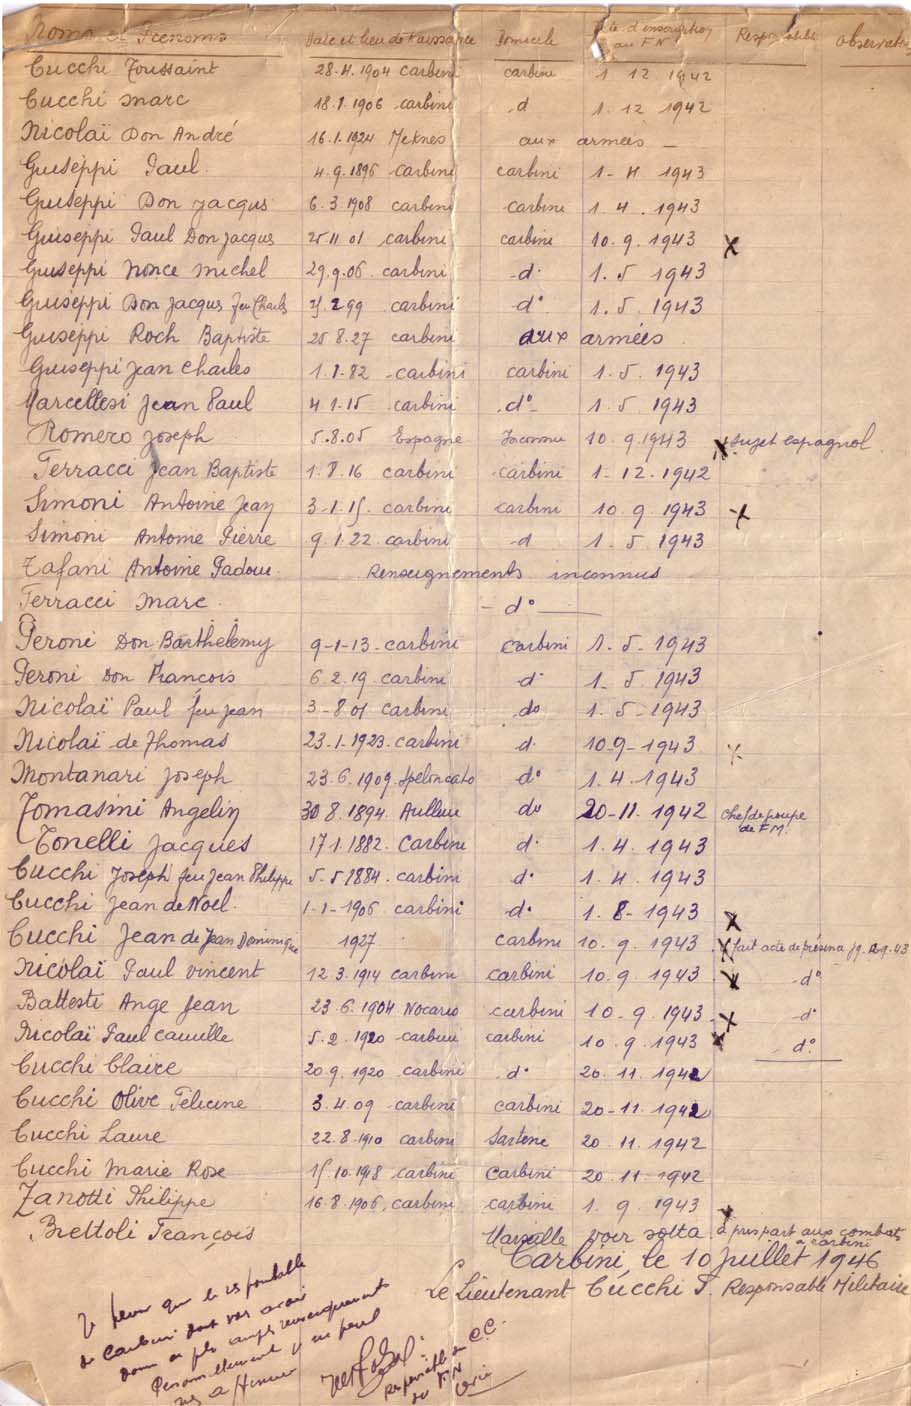 Noms et Prénoms Date et lieu de Naissance Domicile Date d'inscription au FN Responsabilité Observation
Cucchi Toussaint 28.4.1904 Carbini carbini 1 12 1942
Cucchi Marc 18.1.1906 carbini d 1.12 1942
Nicolaï Don André 16.1.1924 Meknes aux armées —
Giuseppi Paul 4.9.1896 carbini carbini 1-4 1943
Giuseppi Don Jacques 6.3.1908 carbini carbini 1.4.1943
Giuseppi Paul Don Jacques 25 11 01 carbini carbini 10.9.1943 X
Giuseppi Nonce Michel 29.9.06. carbini d° 1.5 1943
Giuseppi Don Jacques feu Charles 2.99 carbini d° 1.5.1943
Giuseppi Roch Baptiste 25.8.27 carbini aux armées.
Giuseppi Jean Charles 1.1.82 carbini carbini 1.5.1943
Marcellesi Jean Paul 4.1.15 carbini d° 1.5.1943
Romero Joseph 5.8.05 Espagne Inconnu 10.9.1943 X Sujet espagnol
Terracci Jean Baptiste 1.8.16 carbini carbini 1-12-1942
Simoni Antoine Jean 3-1-15. carbini carbini 10.9.1943 X
Simoni Antoine Pierre 9.1.22. carbini d 1.5 1943
Tafani Antoine Padoue. Renseignements inconnus
Terracci Marc - d° —
Peroni Don Barthélemy 9-1-13-carbini carbini 1.5.1943
Peroni Don François 6.2.19. carbini d° 1-5.1943
Nicolaï Paul feu Jean 3-8 01 carbini do 1.5-1943
Nicolaï de Thomas 23-1-1923. carbini d. 10.9-1943 X
Montanari Joseph 23.6.1909. Speloncato d° 1.4.1943
Tomasini Angelin 30 8.1894. Aullene do 20-11.1942 chef de groupe
de F.M.
Tonelli Jacques 17.1.1882. Carbini d° 1.4.1943
Cucchi Joseph feu Jean Philippe 5-5 1884. carbini d° 1.4 1943
Cucchi Jean de Noel. 1-1-1906 carbini d° 1.8-1943 X
Cucchi Jean de Jean Dominique 1927 carbini 10.9.1943 X fait acte de présence 9.43
Nicolaï Paul Vincent 12.3.1914 carbini carbini 10.9.1943 X d°
Battesti Ange Jean 23.6.1904 Nocario carbini 10.9.1943 X d°
Nicolaï Paul Camille 5.2.1920 carbini carbini 10.9.1943 X d°
Cucchi Claire 20.9.1920 carbini d° 20.11.1942
Cucchi Olive Félicine 3.4.09 carbini carbini 20-11-1942
Cucchi Laure 22.8.1910 carbini Sartene 20.11.1942
Cucchi Marie Rose 15.10.1918 carbini Carbini 20.11-1942
Zanotti Philippe 16.8.1906, carbini carbini 1.9.1943
Brettoli François Marseille voir sotta à pris part aux combats
à carbini
Carbini, le 10 Juillet 1946
Le Lieutenant Cucchi T. Responsable Militaire
Je pense que le responsable
de Carbini doit vous avoir
donné de plus amples renseignements
Personnellement je ne peux
rien affirmer
Responsable du C.C.
du F N